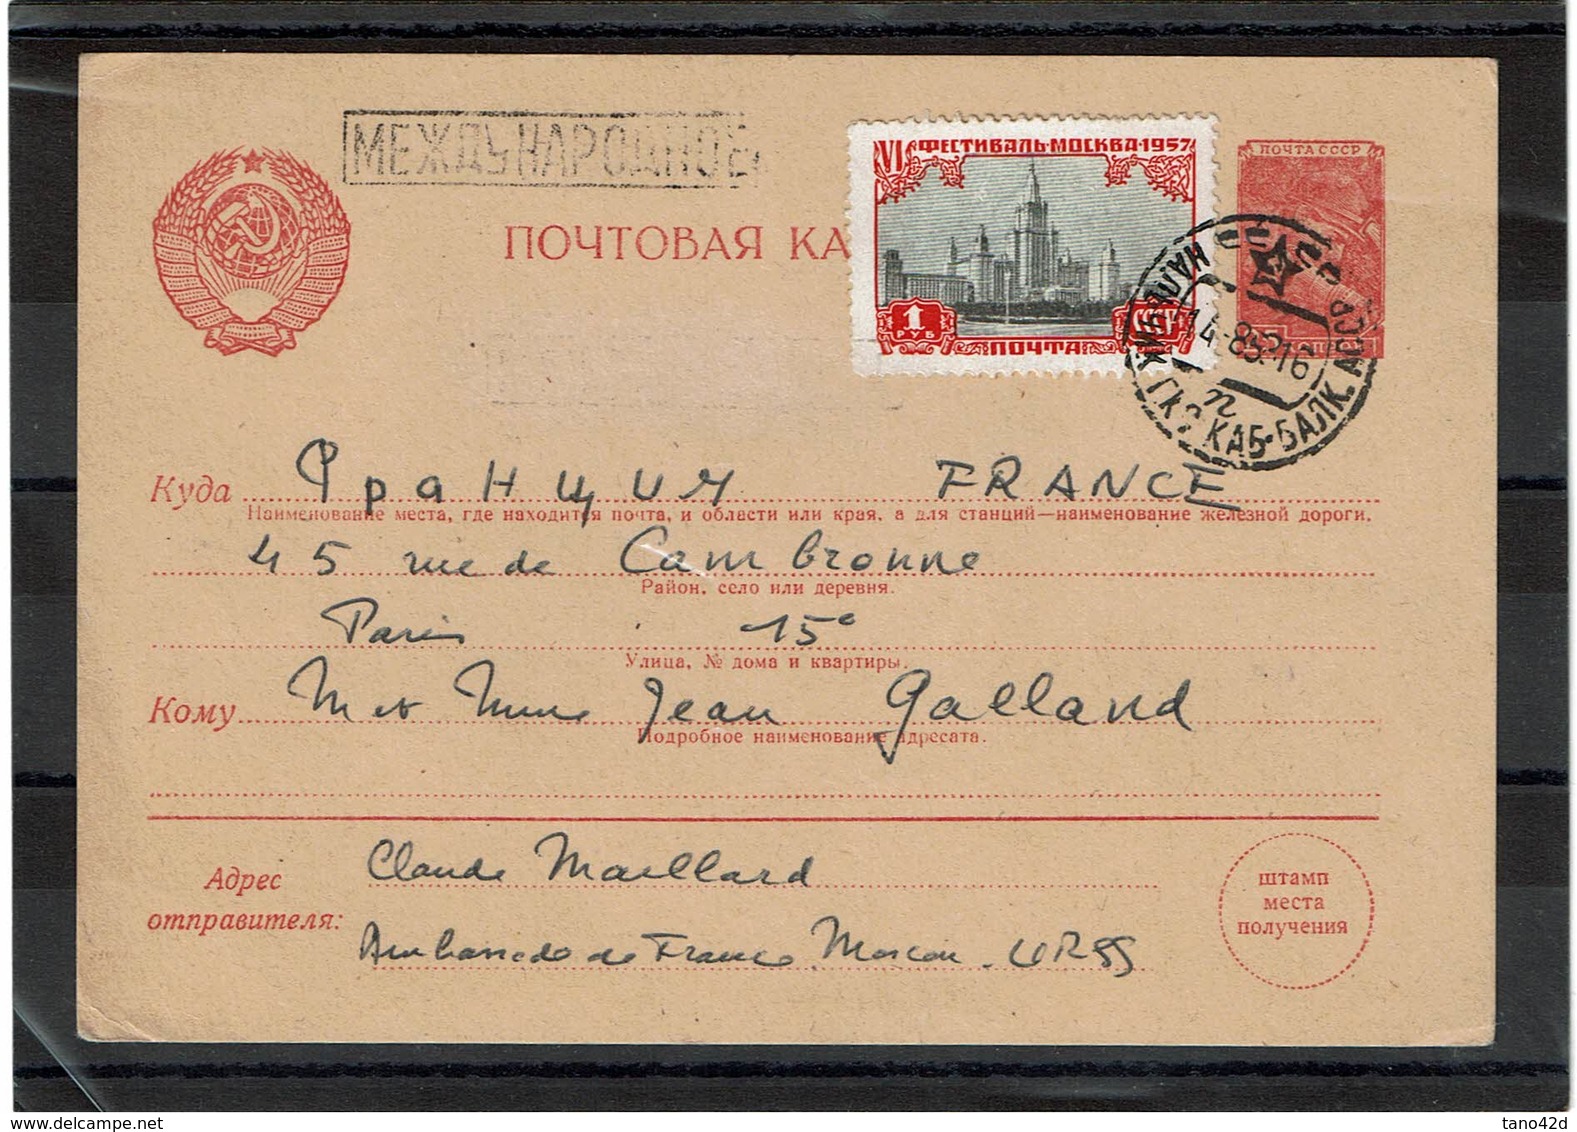 МЕЖДУНАРОДНОЕ
ПОЧТОВАЯ КА
VI ФЕСТИВАЛЬ·МОСКВА·1957
1 РУБ
ПОЧТА
СССР
ПОЧТА СССР
НАЛЬЧИК
КАБ-БАЛК. АССР
Куда Франция FRANCE
Наименование места, где находится почта, и области или края, а для станций—наименование железной дороги.
45 rue de Cambronne
Район, село или деревня.
Paris 15e
Улица, № дома и квартиры.
Кому M et Mme Jean Galland
Подробное наименование адресата.
Адрес отправителя:
Claude Maillard
Ambassade de France Moscou. URSS
штамп
места
получения
www.delcampe.net
tano42d